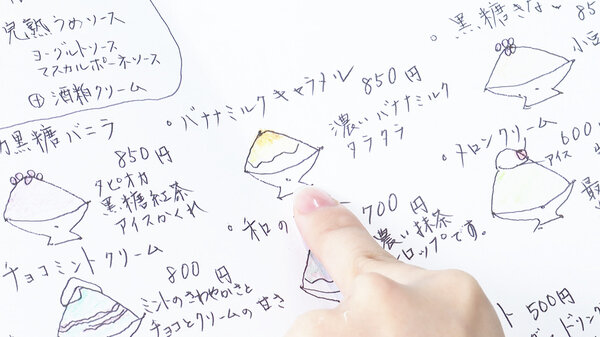 完熟うめソース
ヨーグルトソース
マスカルポーネソース
⊕酒粕クリーム
黒糖バニラ
850円
タピオカ
黒糖紅茶
アイスかくれ
チョコミントクリーム
800円
ミントのさわやかさと
チョコとクリームの甘さ
・バナナミルクキャラメル
850円
濃いバナナミルク
タラタラ
・和の
700円
濃い抹茶
ロップです。
・黒糖きな
850
小豆
・メロンクリーム
600
アイス
500円